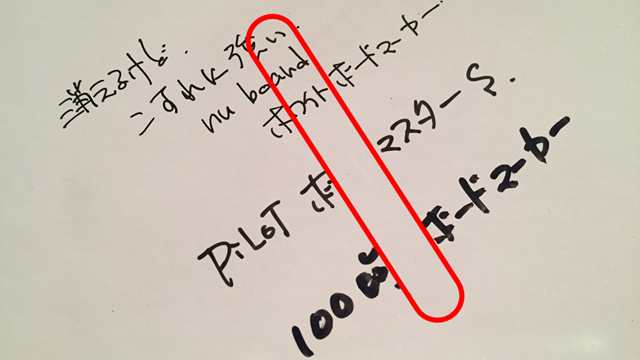 消えるけど.
こすれに強い.
nu board
ボードマーカー
PiLoT ボ マスターS.
100均 ボードマーカー